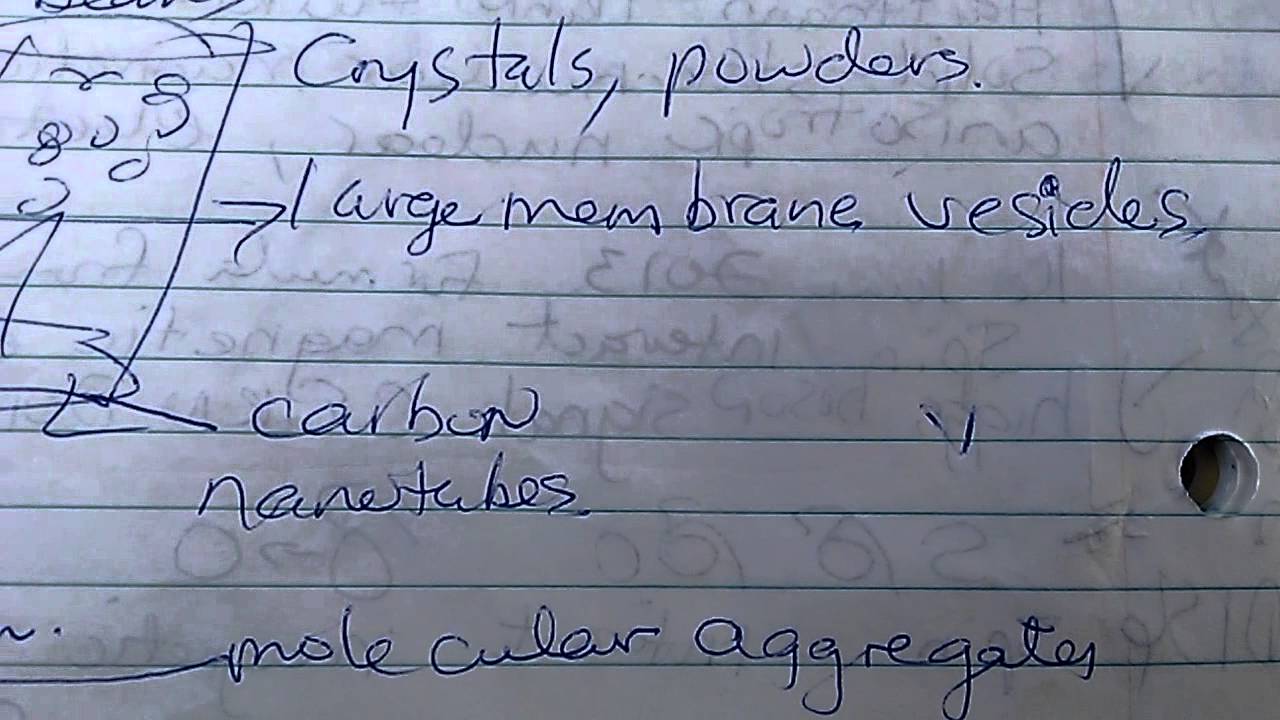 Crystals, powders.
large membrane vesicles,
carbon
nanotubes.
molecular aggregates